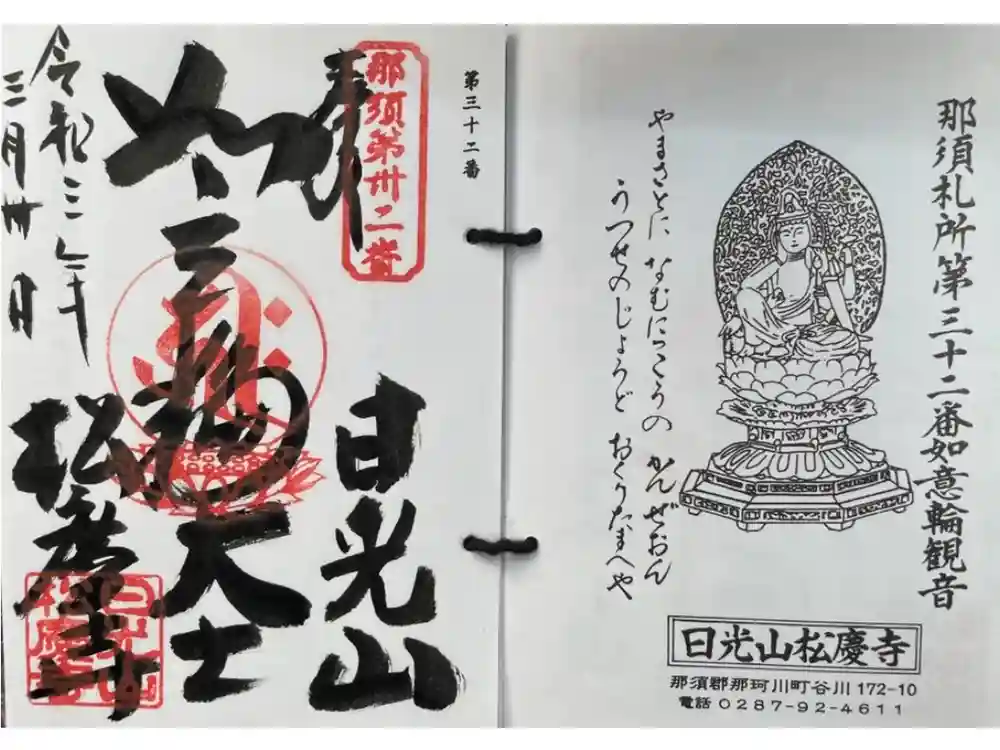 那須札所第三十二番如意輪観音
やまざとに なむにつこうの かんぜおん
うつせのじょうど おくりたまへや
日光山松慶寺
那須郡那珂川町谷川172-10
電話 0287-92-4611
第三十二番
那須第卅二番
奉拝
日光山
如意輪大士
松慶寺
令和三年
三月卅日